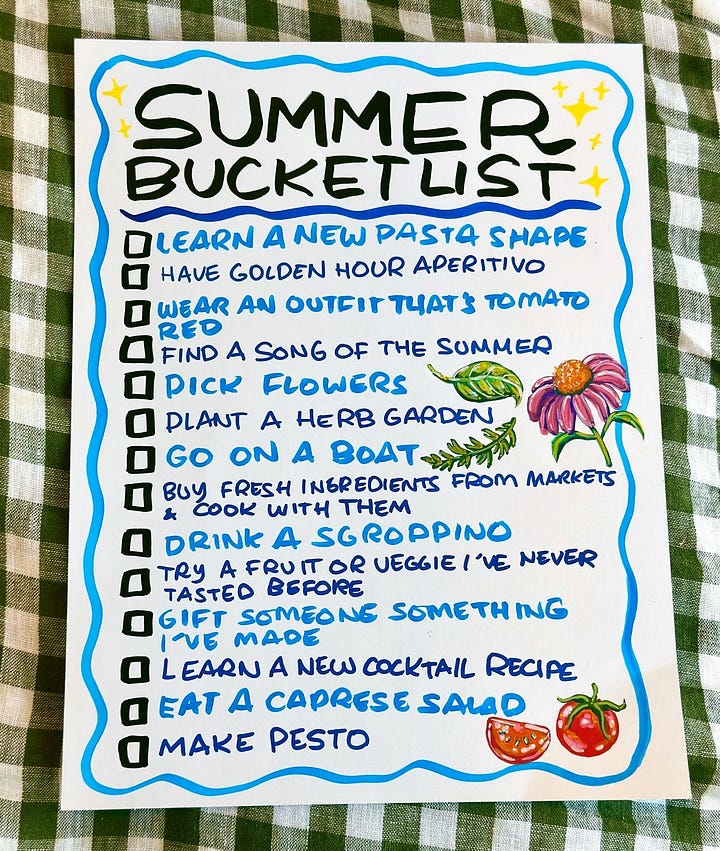 SUMMER
BUCKET LIST
LEARN A NEW PASTA SHAPE
HAVE GOLDEN HOUR APERITIVO
WEAR AN OUTFIT THAT'S TOMATO
RED
FIND A SONG OF THE SUMMER
PICK FLOWERS
PLANT A HERB GARDEN
GO ON A BOAT
BUY FRESH INGREDIENTS FROM MARKETS
& COOK WITH THEM
DRINK A SGROPPINO
TRY A FRUIT OR VEGGIE I'VE NEVER
TASTED BEFORE
GIFT SOMEONE SOMETHING
I'VE MADE
LEARN A NEW COCKTAIL RECIPE
EAT A CAPRESE SALAD
MAKE PESTO